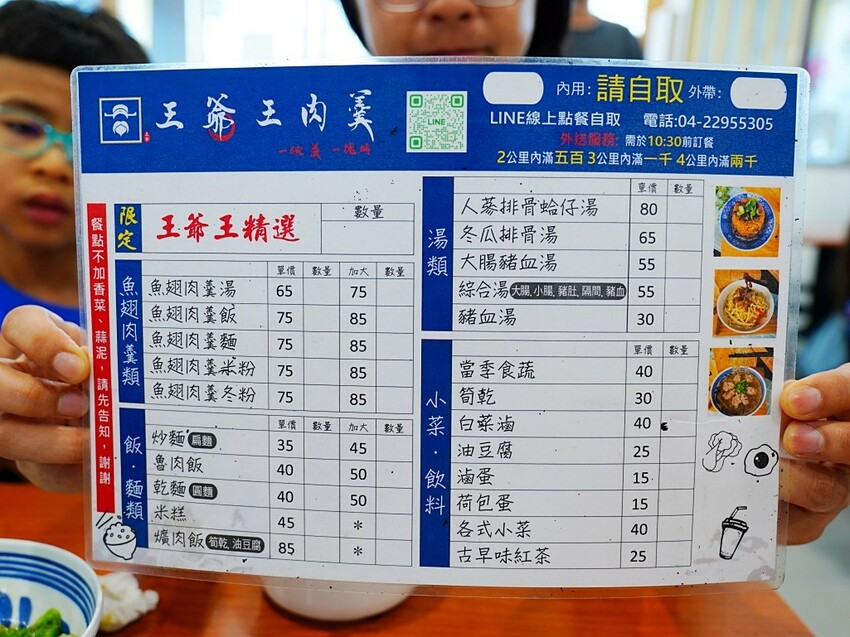 王爺王肉羹
一碗羹 一塊肉
LINE
內用: 請自取 外帶:
LINE線上點餐自取 電話:04-22955305
外送服務: 需於10:30前訂餐
2公里內滿五百 3公里內滿一千 4公里內滿兩千
餐點不加香菜、蒜泥,請先告知,謝謝
限定 王爺王精選 數量
魚翅肉羹類
單價 數量 加大 數量
魚翅肉羹湯 65 75
魚翅肉羹飯 75 85
魚翅肉羹麵 75 85
魚翅肉羹米粉 75 85
魚翅肉羹冬粉 75 85
飯·麵類
單價 數量 加大 數量
炒麵 扁麵 35 45
魯肉飯 40 50
乾麵 圓麵 40 50
米糕 45 *
爌肉飯 筍乾 油豆腐 85 *
湯類
單價 數量
人蔘排骨蛤仔湯 80
冬瓜排骨湯 65
大腸豬血湯 55
綜合湯 大腸,小腸,豬肚,隔間,豬血 55
豬血湯 30
小菜·飲料
單價 數量
當季食蔬 40
筍乾 30
白菜滷 40
油豆腐 25
滷蛋 15
荷包蛋 15
各式小菜 40
古早味紅茶 25